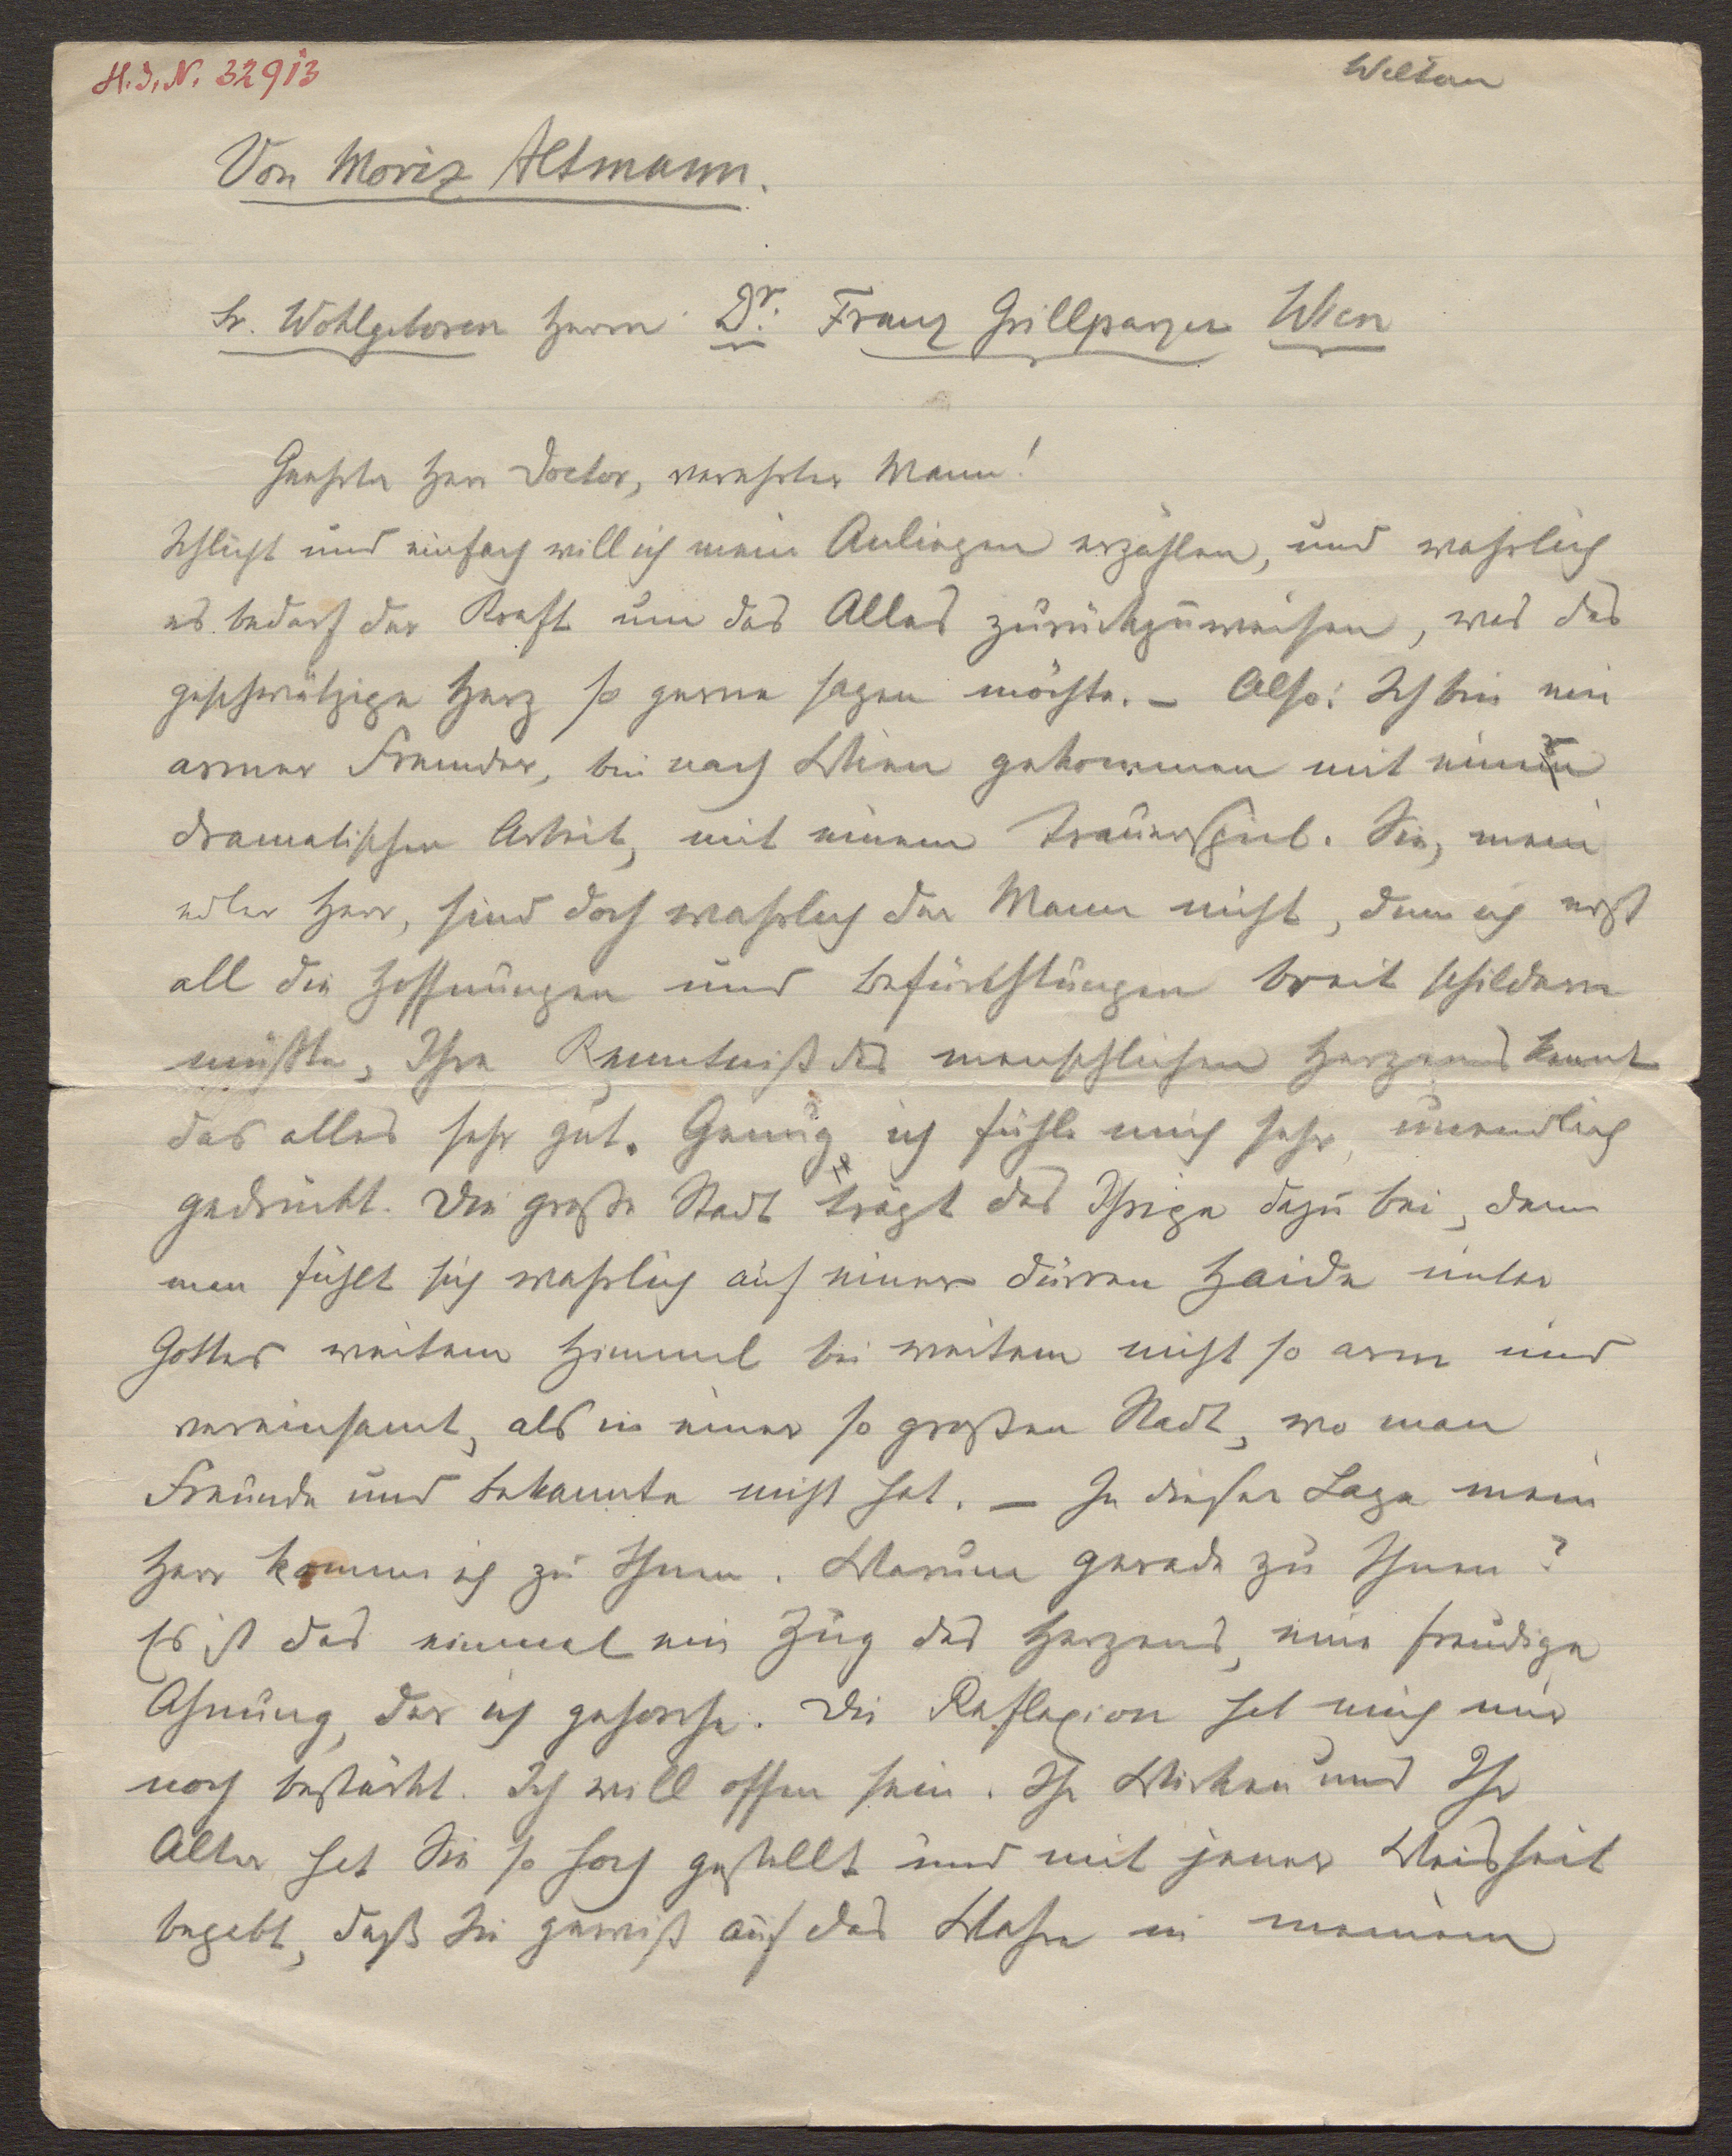 H. I. N. 32913
Weltau
Von Moriz Altmann.
Sr. Wohlgeboren Herrn Dr. Franz Grillparzer Wien
Geehrter Herr Doctor, verehrter Mann!
Schlicht und einfach will ich mein Anliegen erzählen, und wahrlich
es bedarf der Kraft um das Alles zurückzuweisen, was das
geschwätzige Herz so gerne sagen möchte. – Also: Ich bin ein
armer Fremder, bin nach Wien gekommen mit einer
dramatischen Arbeit, mit einem Trauerspiel. Sie, mein
edler Herr, sind doch wahrlich der Mann nicht, dem ich erst
all die Hoffnungen und Befürchtungen breit schildern
müßte, Ihre Kenntniß des menschlichen Herzens kennt
das alles sehr gut. Genug ich fühle mich sehr, unendlich
gedrückt. Die große Stadt trägt das Ihrige dazu bei, denn
man fühlt sich wahrlich auf einer dürren Haide unter
Gottes weitem Himmel bei weitem nicht so arm und
vereinsamt, als in einer so großen Stadt, wo man
Freunde und Bekannte nicht hat. – In dieser Lage mein
Herr komme ich zu Ihnen. Warum gerade zu Ihnen?
Es ist das einmal ein Zug des Herzens, eine freudige
Ahnung, der ich gehorche. Die Reflexion hat mich nur
noch bestärkt. Ich will offen sein. Ihr Wirken und Ihr
Alter hat Sie so hoch gestellt und mit jener Weisheit
begabt, daß Sie gewiß auf das Wahre in meinem